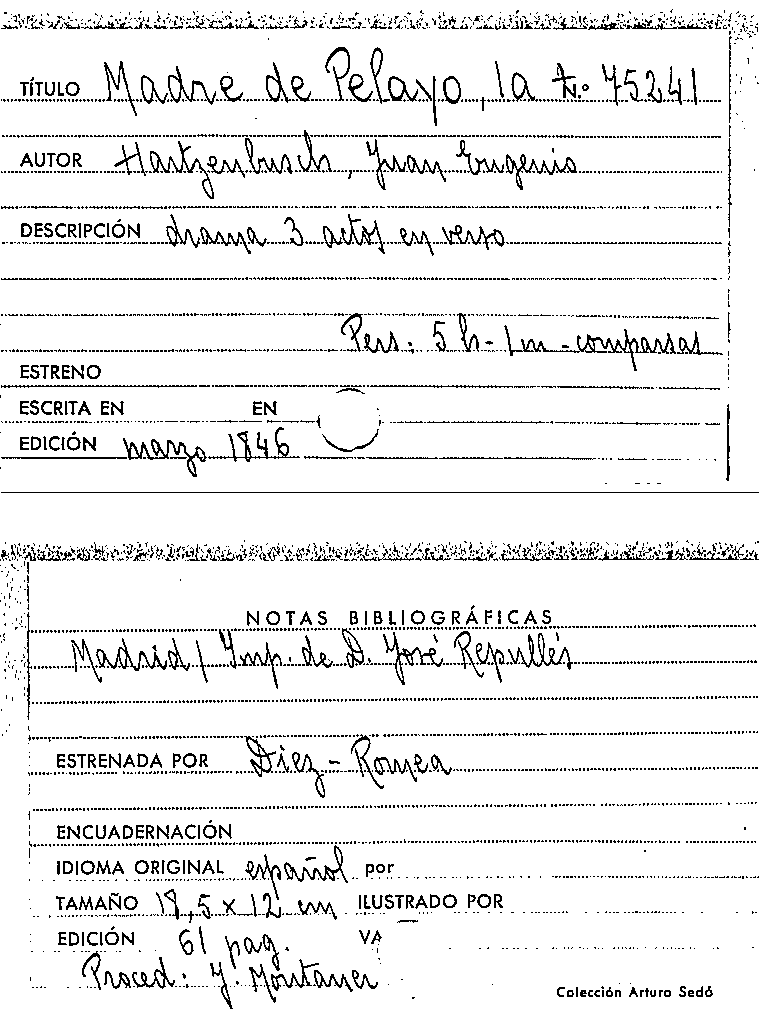 TÍTULO Madre de Pelayo, la N.º 75241
AUTOR Hartzenbusch, Juan Eugenio
DESCRIPCIÓN drama 3 actos en verso
Pers: 5 h - 1 m - comparsas
ESTRENO
ESCRITA EN EN
EDICIÓN marzo 1846
NOTAS BIBLIOGRÁFICAS
Madrid / Imp. de D. José Repullés
ESTRENADA POR Diez - Romea
ENCUADERNACIÓN
IDIOMA ORIGINAL español por
TAMAÑO 18,5 x 12 cm ILUSTRADO POR
EDICIÓN 61 pag. VA
Proced: J. Montaner
Colección Arturo Sedó